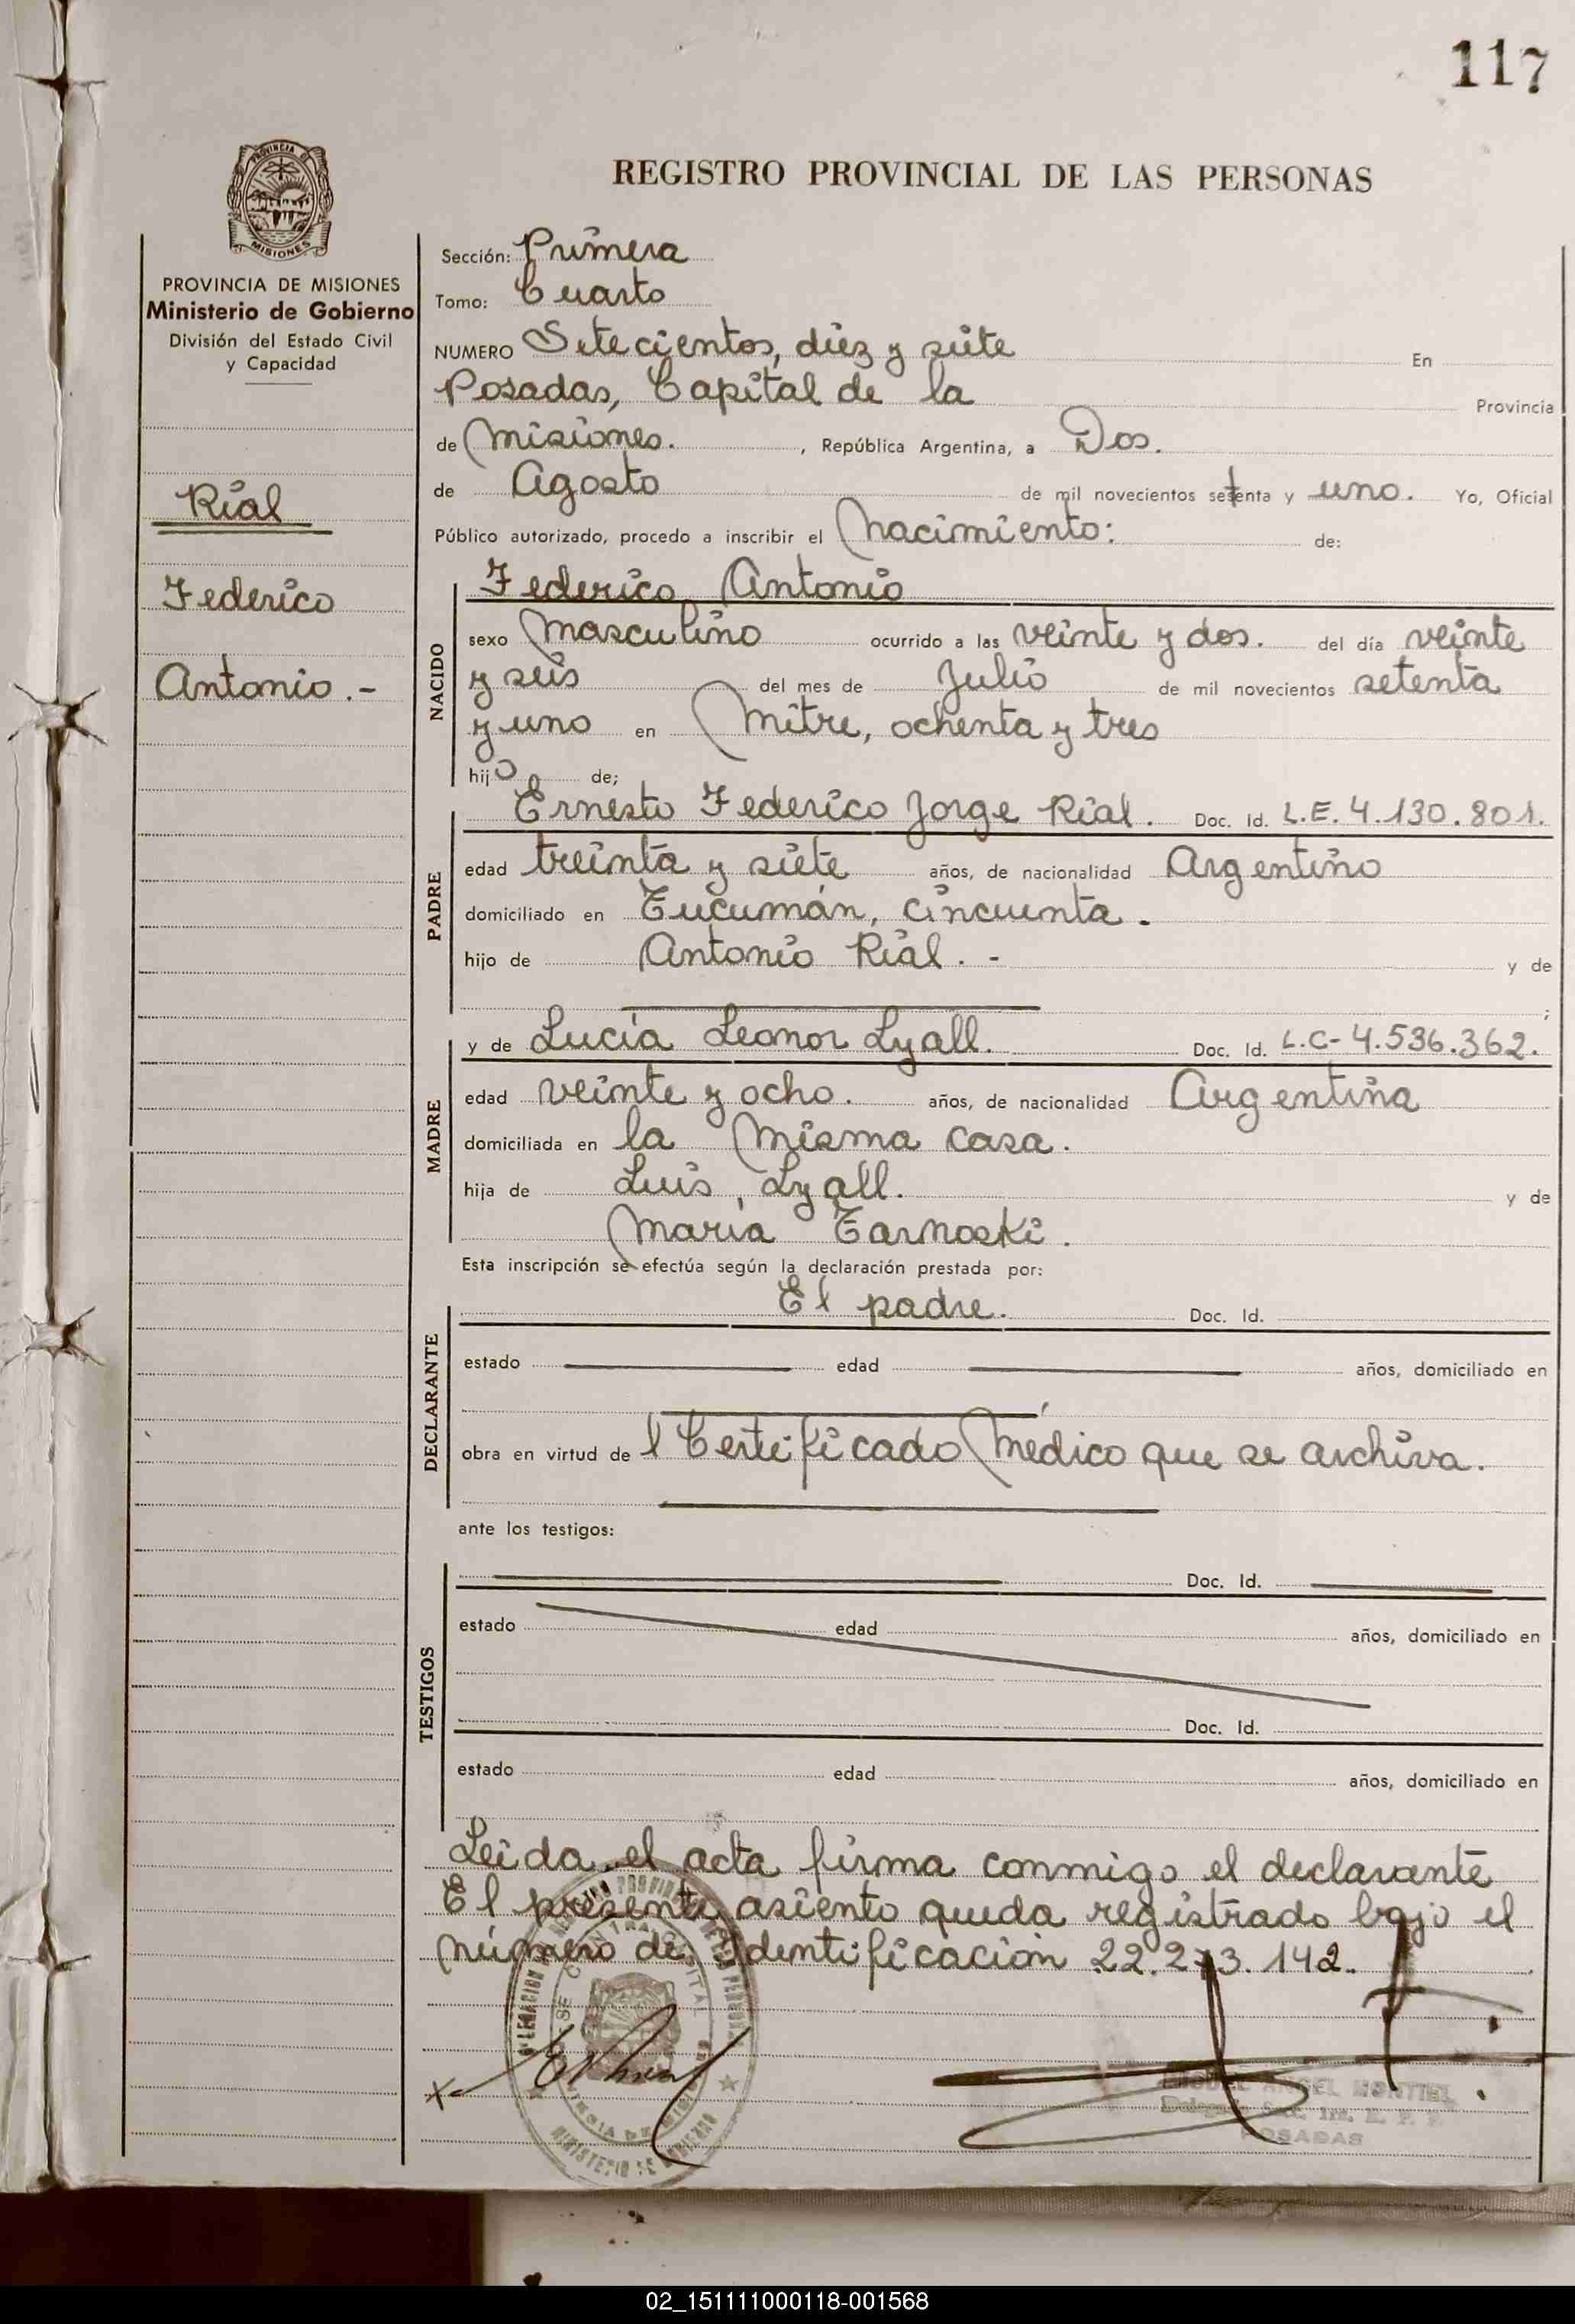 117
REGISTRO PROVINCIAL DE LAS PERSONAS
PROVINCIA DE MISIONES
PROVINCIA DE MISIONES
Ministerio de Gobierno
División del Estado Civil
y Capacidad
Rial
Federico
Antonio.-
Sección: Primera
Tomo: Cuarto
NUMERO Setecientos, diez y siete En
Posadas, Capital de la Provincia
de Misiones. , República Argentina, a Dos.
de Agosto de mil novecientos setenta y uno. Yo, Oficial
Público autorizado, procedo a inscribir el Nacimiento: de:
NACIDO
Federico Antonio
sexo Masculino ocurrido a las veinte y dos. del día veinte
y seis del mes de Julio de mil novecientos setenta
y uno en Mitre, ochenta y tres
hijo de;
PADRE
Ernesto Federico Jorge Rial. Doc. Id. L.E. 4.130.801.
edad treinta y siete años, de nacionalidad Argentino
domiciliado en Tucumán, cincuenta.
hijo de Antonio Rial. - y de
;
MADRE
y de Lucía Leonor Lyall. Doc. Id. L.C- 4.536.362.
edad veinte y ocho. años, de nacionalidad Argentina
domiciliada en la misma casa.
hija de Luis, Lyall. y de
María Tarnoski.
Esta inscripción se efectúa según la declaración prestada por:
DECLARANTE
El padre. Doc. Id.
estado edad años, domiciliado en
obra en virtud de l Certificado Medico que se archiva.
ante los testigos:
TESTIGOS
Doc. Id.
estado edad años, domiciliado en
Doc. Id.
estado edad años, domiciliado en
Leida el acta firma conmigo el declarante
El presente asiento queda registrado bajo el
número de Identificación 22.273.142.
MIGUEL ANGEL MONTIEL
POSADAS
MINISTERIO DE GOBIERNO
02_151111000118-001568